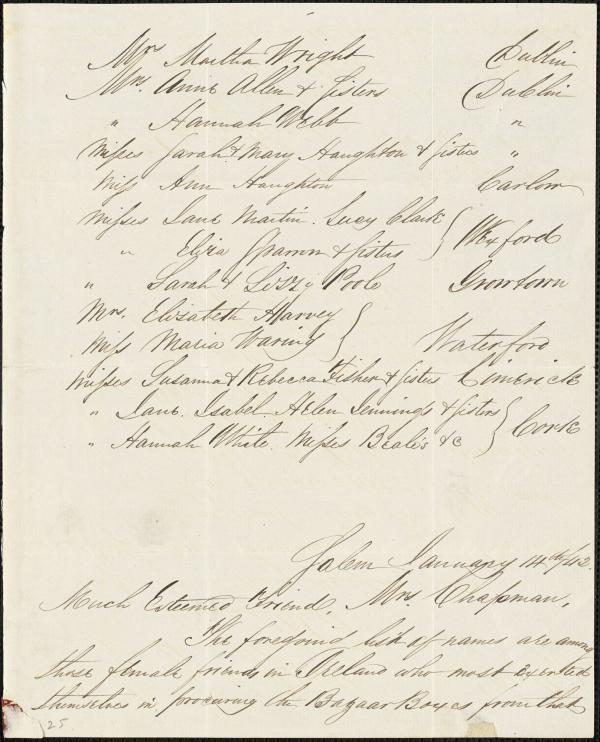 Mrs Martha Wright Dublin
Mrs. Anne Allen & Sisters Dublin
" Hannah Webb "
Misses Sarah & Mary Haughton & Sisters "
Miss Ann Haughton Carlow
Misses Jane Martin. Lucy Clark
" Eliza & Sisters } Wexford
" Sarah & Lizzy Poole Growtown
Mrs. Elizabeth Harvey
Miss Maria Waring } Waterford
Misses Susanna & Rebecca Fisher & Sisters Limerick
" Jane. Isabel. Helen Jennings & Sisters
" Hannah White. Misses Beale's &c } Cork
Salem January 14th/42.
Much Esteemed Friend, Mrs. Chapman,
The foregoing list of names are among
those female friends in Ireland who most exerted
themselves in procuring the Bazaar Boxes from that
25